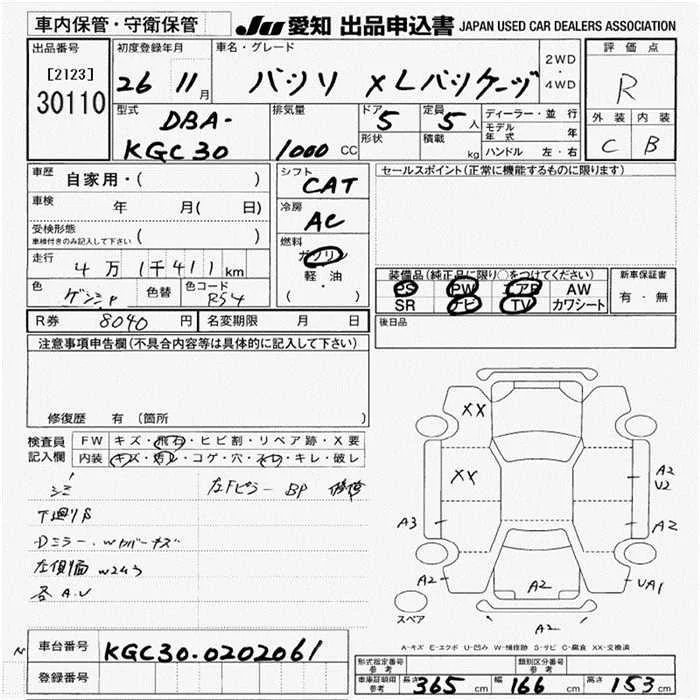 車内保管・守衛保管
JU 愛知 出品申込書 JAPAN USED CAR DEALERS ASSOCIATION
出品番号
[2123]
30110
初度登録年月
26 11月
車名・グレード
パッソ XLパッケージ
2WD
・
4WD
評価点
R
外装 内装
C B
型式
DBA-
KGC30
排気量
1000 CC
ドア 5
形状
定員 5 人
積載 kg
ディーラー・並行
モデル年式 年
ハンドル 左・右
車歴 自家用・( )
車検 年 月( 日)
受検形態
車検付きのみ記入して下さい ( )
走行 4万1千411km
色 色替 色コード R54
シフト
CAT
冷房
AC
燃料
ガソリン
軽・油
( ・ )
セールスポイント(正常に機能するものに限ります)
装備品(純正品に限り○をつけてください)
PS PW エアB AW
SR ナビ TV カワシート
新車保証書
有・無
R券 8040円 名変期限 月 日
後日品
注意事項申告欄(不具合内容等は具体的に記入して下さい)
修復歴 有(箇所 )
検査員
記入欄
FW キズ・飛石・ヒビ割・リペア跡・X要
内装 キズ・汚レ・コゲ・穴・スレ・キレ・破レ
シミ 左Fピラー BP 修復
下廻りB
Dミラー
各A.U
XX
XX
A2
U2
A3
A2
A2
A2
UA1
A2
スペア
A-キズ E-エクボ U-凹み W-補修跡 S-サビ C-腐食 XX-交換済
車台番号 KGC30-0202061
登録番号
形式指定番号
参考
類別区分番号
参考
車庫証明用
参考
長さ 365 cm 幅 166 cm 高さ 153 cm